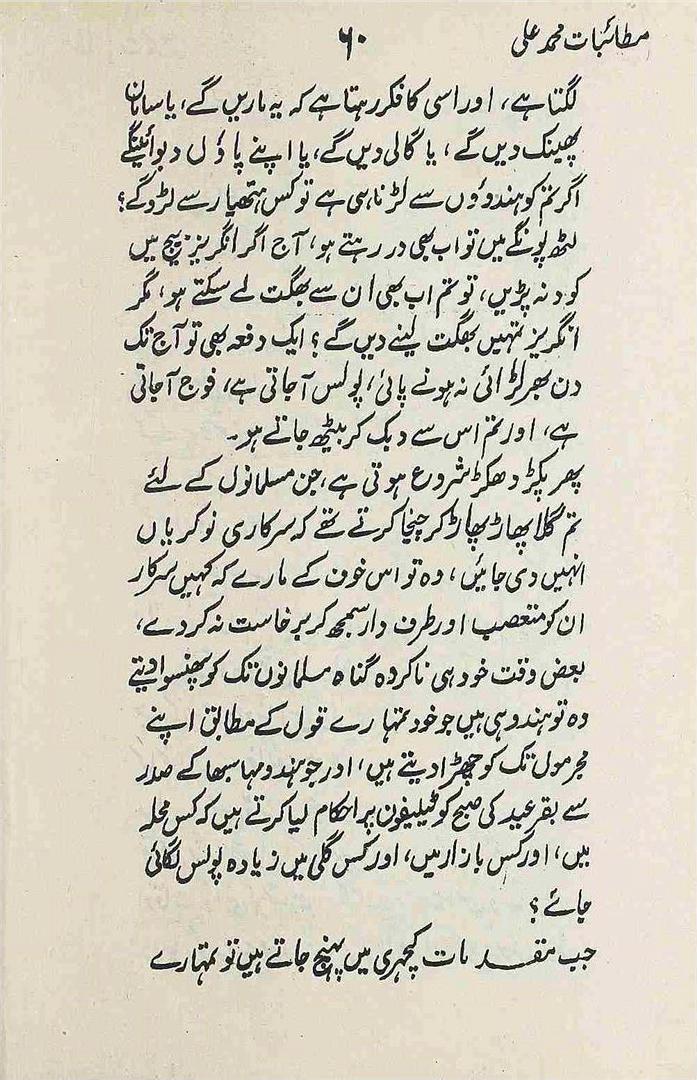 مطائبات محمد علی
۶۰
لگتا ہے، اور اسی کا فکر رہتا ہے کہ یہ ماریں گے، یا سامان
پھینک دیں گے، یا گالی دیں گے، یا اپنے پاؤں دبوائینگے
اگر تم کو ہندوؤں سے لڑنا ہی ہے تو کس ہتھیار سے لڑو گے؟
لٹھ پونگے میں تو اب بھی در رہتے ہو، آج اگر انگریز بیچ میں
کود نہ پڑیں، تو تم اب بھی ان سے بھگت لے سکتے ہو، مگر
انگریز تمہیں بھگت لینے دیں گے؟ ایک دفعہ بھی تو آج تک
دن بھر لڑائی نہ ہونے پائی، پولس آجاتی ہے، فوج آجاتی
ہے، اور تم اس سے دبک کر بیٹھ جاتے ہو۔
پھر پکڑ دھکڑ شروع ہوتی ہے، جن مسلمانوں کے لئے
تم گلا پھاڑ پھاڑ کر چنچا کرتے تھے کہ سرکاری نوکریاں
انہیں دی جائیں، وہ تو اس خوف کے مارے کہ کہیں سرکار
ان کو متعصب اور طرف دار سمجھ کر برخاست نہ کر دے،
بعض وقت خود ہی ناکردہ گناہ مسلمانوں تک کو پھنسوا دیتے
وہ تو ہندو ہی ہیں جو خود تمہارے قول کے مطابق اپنے
مجرموں تک کو چھڑا دیتے ہیں، اور جو ہندو مہا سبھا کے صدر
سے بقر عید کی صبح کو ٹیلیفون پر احکام لیا کرتے ہیں کہ کس محلہ
میں، اور کس بازار میں، اور کس گلی میں زیادہ پولس لگائی
جائے؟
جب مقدمات کچہری میں پہنچ جاتے ہیں تو تمہارے